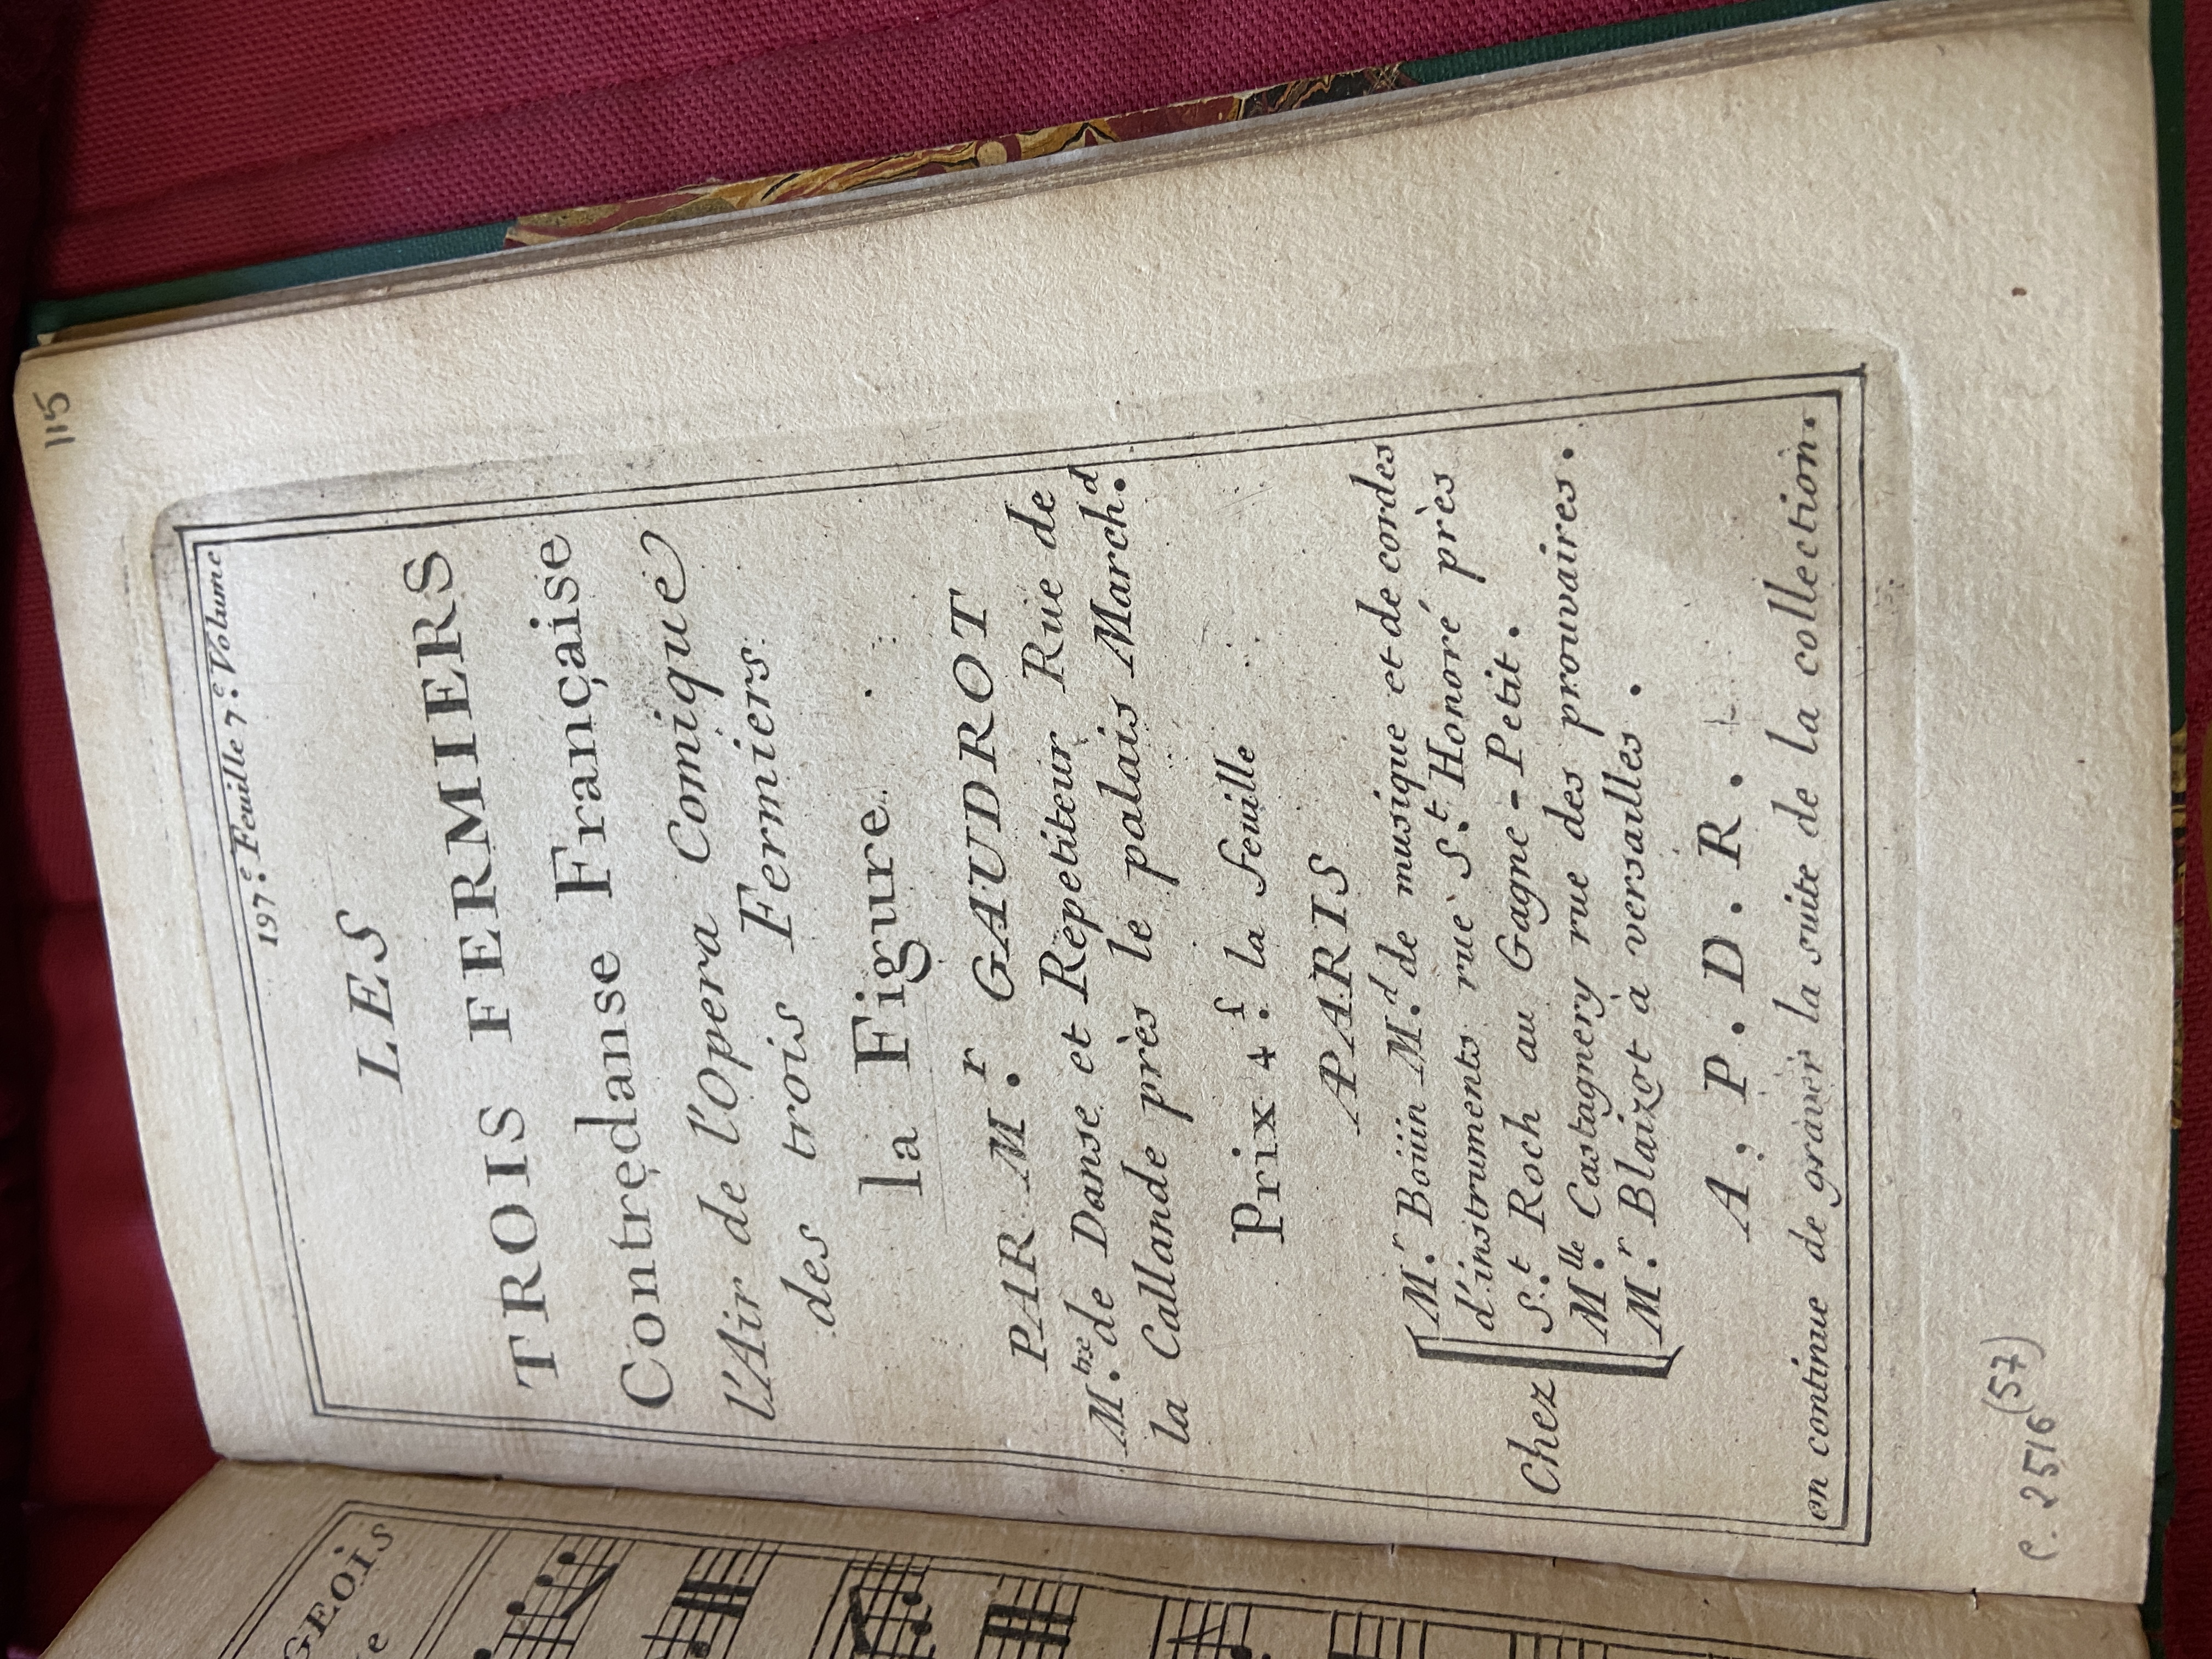 115
197.e Feuille 7.e Volume
LES
TROIS FERMIERS
Contredanse Française
l'Air de l'Opera Comique
des trois Fermiers
la Figure
PAR M.r GAUDROT
M.tre de Danse et Repetiteur Rue de
la Callande près le palais March.d
Prix 4.s la feuille
PARIS
Chez
M.r Boüin M.d de musique et de cordes
d'instruments rue S.t Honoré près
S.t Roch au Gagne-Petit.
M.lle Castagnery rue des prouvaires.
M.r Blaizot à versailles.
A. P. D. R.
on continue de graver la suite de la collection.
C. 2516 (57)
GEOIS
e